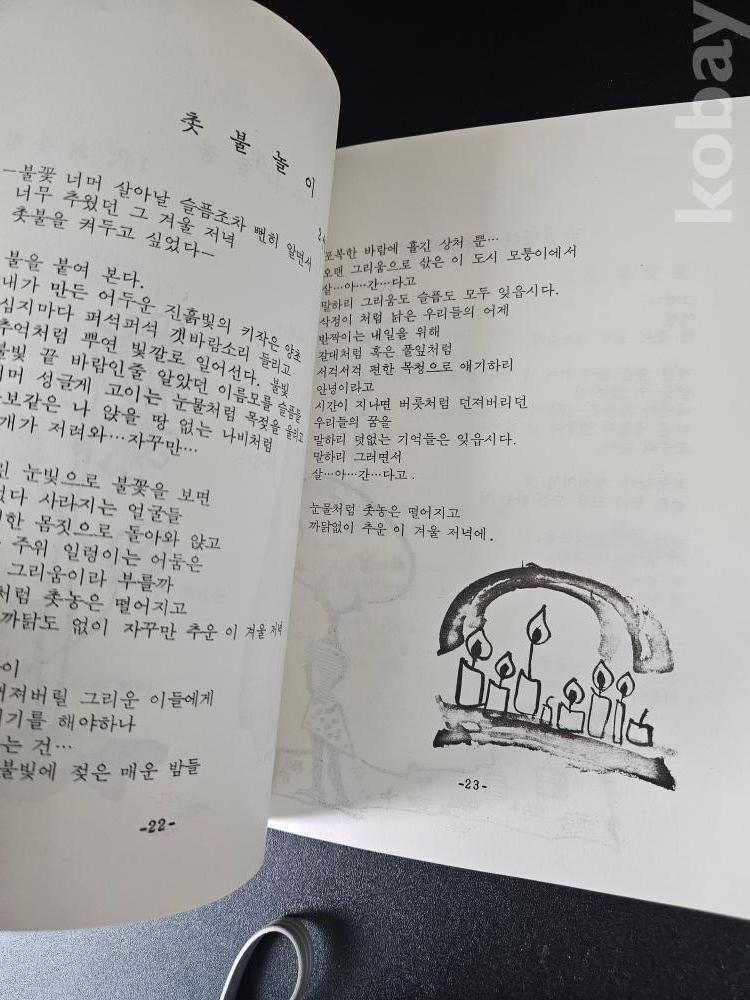 촛불놀이
—불꽃 너머 살아날 슬픔조차 뻔히 알면서
너무 추웠던 그 겨울 저녁
촛불을 켜두고 싶었다—
불을 붙여 본다.
내가 만든 어두운 진흙빛의 키작은 양초
심지마다 퍼석퍼석 갯바람소리 들리고
추억처럼 뿌연 빛깔로 일어선다. 불빛
불빛 끝 바람인줄 알았던 이름모를 슬픔들
너머 성글게 고이는 눈물처럼 목젖을 울리고
같은 나 앉을 땅 없는 나비처럼
개가 저려와…자꾸만…
눈빛으로 불꽃을 보면
사라지는 얼굴들
몸짓으로 돌아와 앉고
주위 일렁이는 어둠은
그리움이라 부를까
처럼 촛농은 떨어지고
까닭도 없이 자꾸만 추운 이 겨울 저녁
이
져버릴 그리운 이들에게
기를 해야하나
는 건…
불빛에 젖은 매운 밤들
-22-
포복한 바람에 흘긴 상처 뿐…
오랜 그리움으로 삯은 이 도시 모퉁이에서
살…아…간…다고
말하리 그리움도 슬픔도 모두 잊읍시다.
삭정이 처럼 낡은 우리들의 어제
반짝이는 내일을 위해
갈대처럼 혹은 풀잎처럼
서걱서걱 편한 목청으로 얘기하리
안녕이라고
시간이 지나면 버릇처럼 던져버리던
우리들의 꿈을
말하리 덧없는 기억들은 잊읍시다.
말하리 그러면서
살…아…간…다고.
눈물처럼 촛농은 떨어지고
까닭없이 추운 이 겨울 저녁에.
-23-
kobay